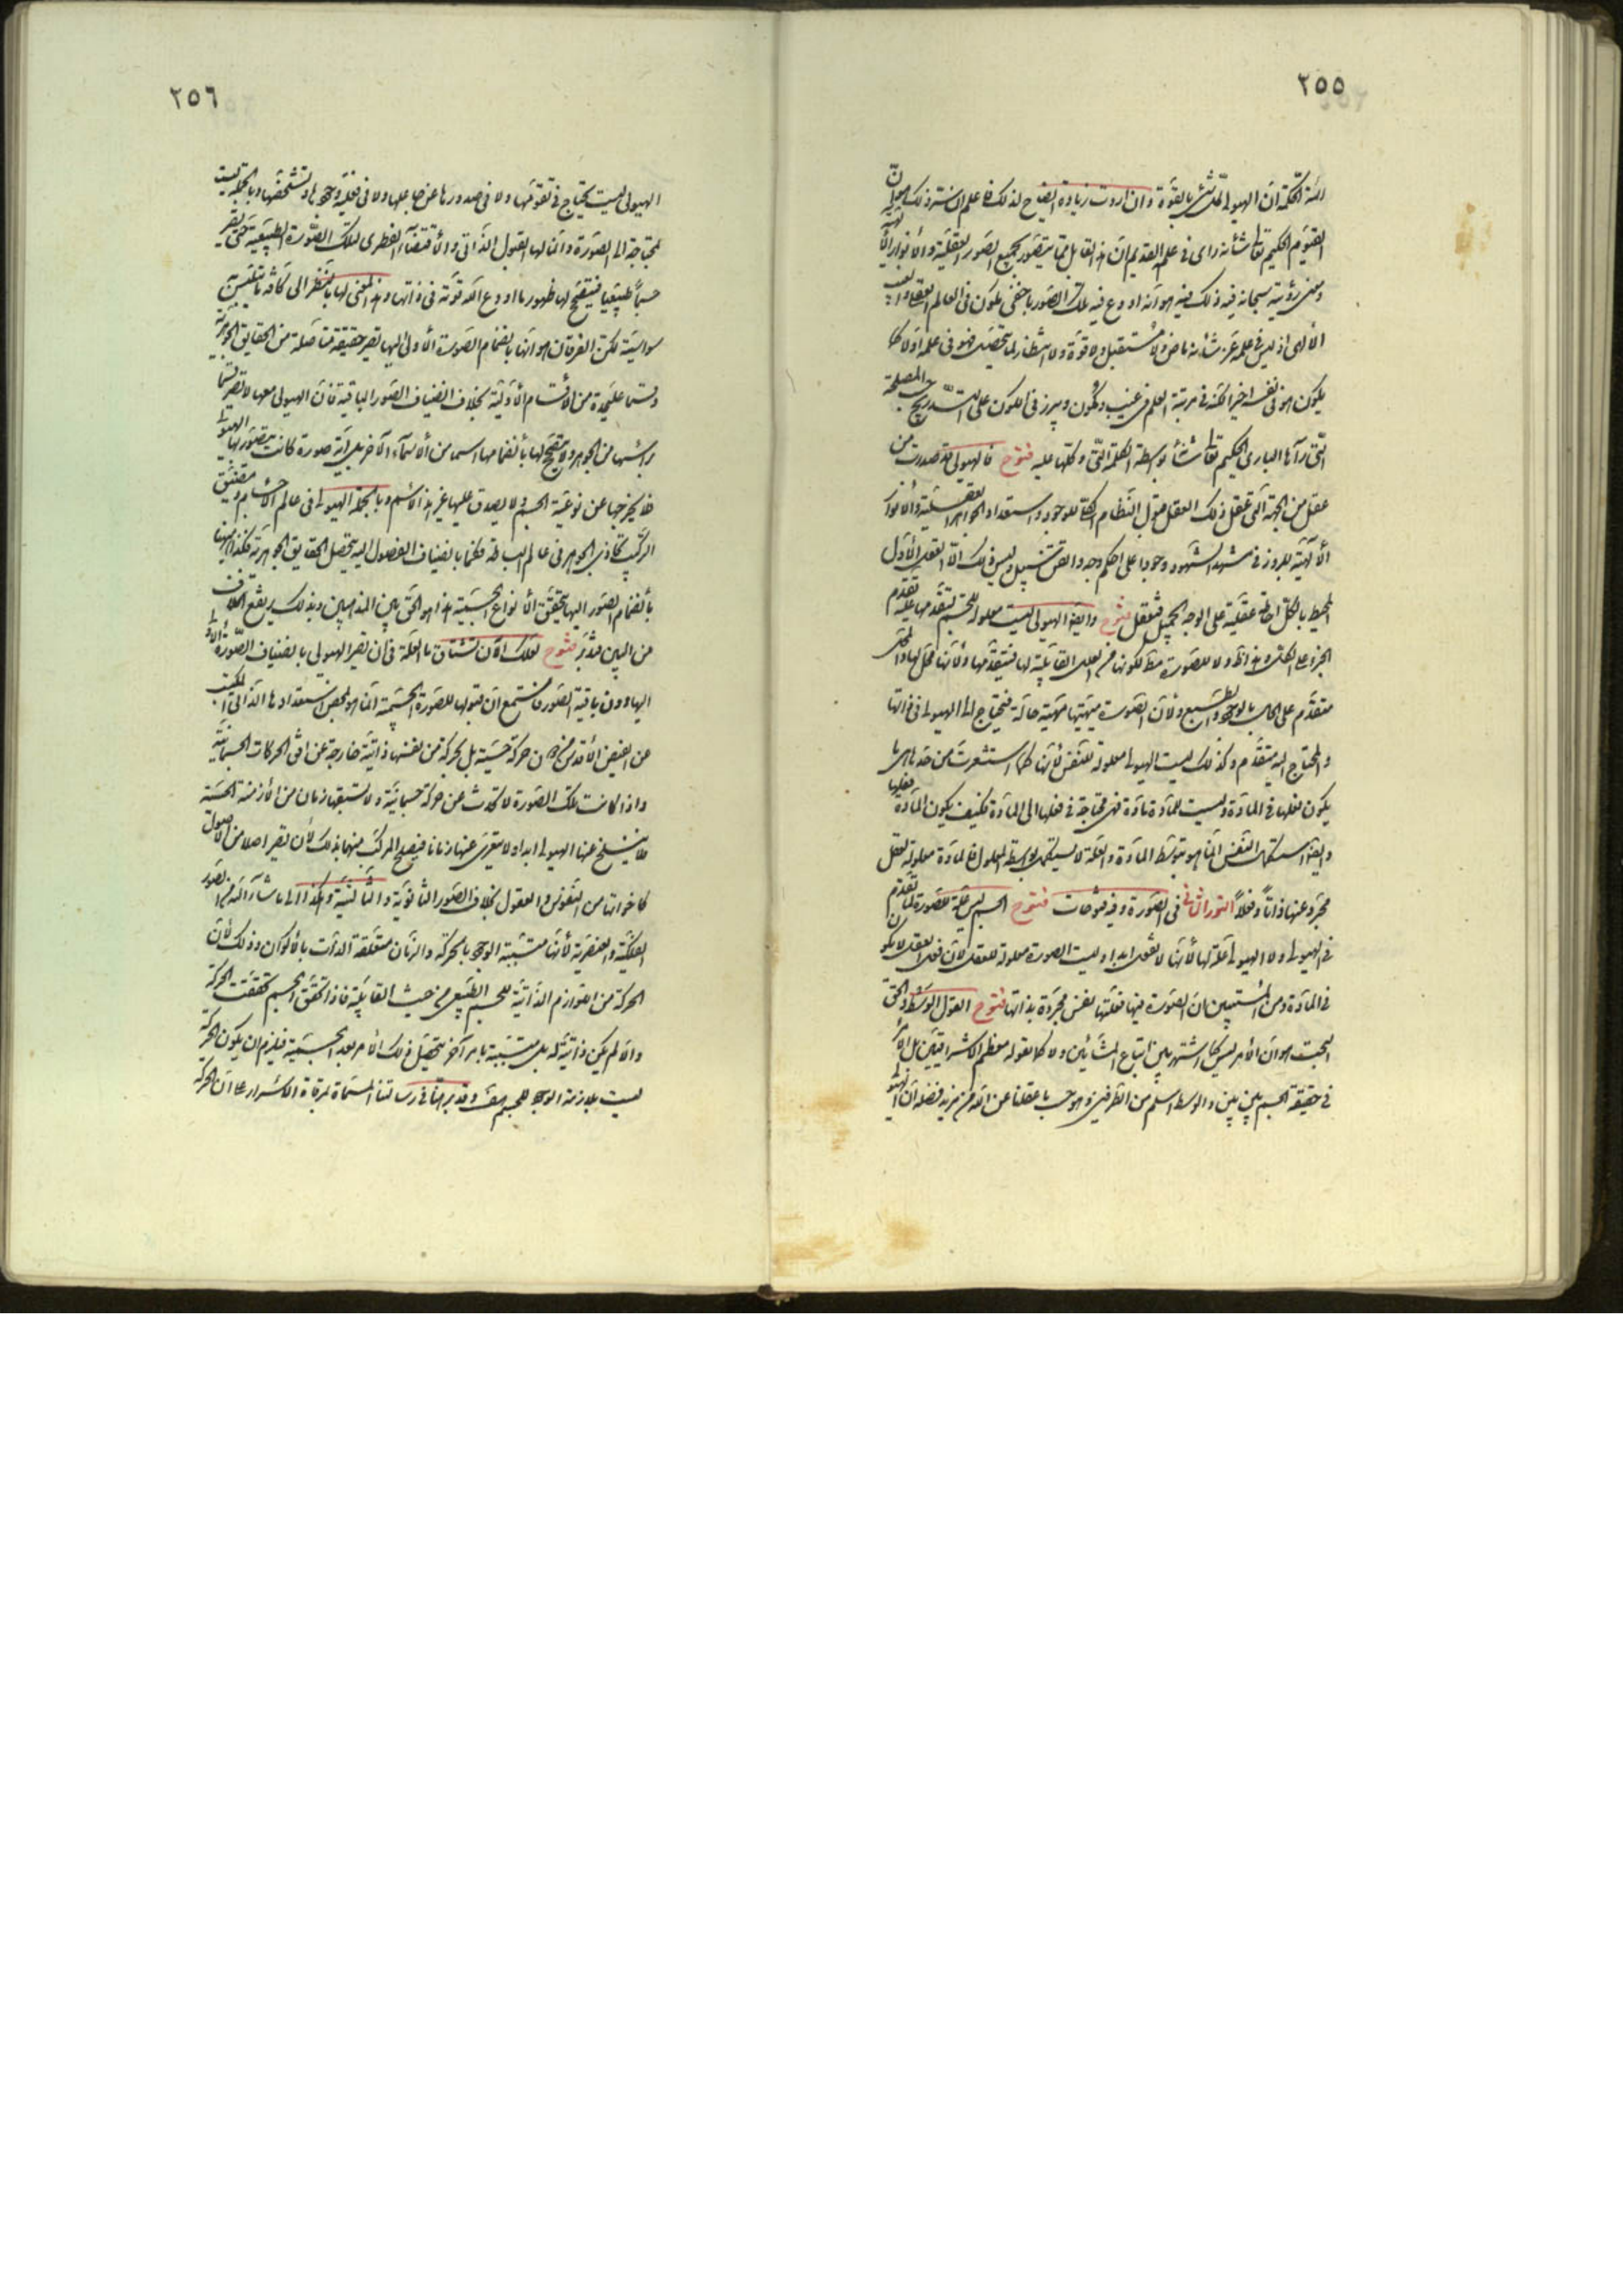 ٢٥٥
ائمة الحكمة ان الهيولى كل شئ بالقوة وان اردت زيادة ايضاح لذلك فاعلم ان سر ذلك هو ان
القيوم الحكيم تعالى شأنه رأى فى علمه القديم ان هذا القابل مما يتصور بجميع الصور العقلية والانوار الالهية
ومعنى رؤيته سبحانه فيه ذلك هو انه اودع فيه تلك الصور باخفى كون فى العالم
الالهى اذ ليس فى علمه عز شأنه ماض ولا مستقبل ولا قوة ولا انتظار لما يتحصل فهو فى علمه اولا كما
يكون هو فى نفسه اخيرا لكنه فى مرتبة العلم فى غيب وكمون ويبرز فى الكون على التدريج المصلحة
التى رآها البارى الحكيم تعالى شأنه بواسطة الكلمة التى وكلها عليه فتوح فالهيولى قد صدرت من
عقل من الجهة التى تعقل ذلك العقل قبول النظام الكلى للوجود واستعداد الجواهر العقلية والانوار
الالهية للبروز فى مشهد الشهود وجودا على احكم وجه واتقن سبيل وليس ذلك الا العقل الاول
المحيط بالكل احاطة عقلية على الوجه الجميل فتعقل فتوح وايضا الهيولى ليست معلولة للجسم لتقدمها عليه تقدم
الجزء على الكل وهذا ظ ولا للصورة مط لكونها من العلل القابلية لها فتتقدمها ولأنها محل لها والمحل
متقدم على الحال بالوجود والطبع ولأن الصورة مهيتها مهية حالة فتحتاج الى الهيولى فى ذاتها
والمحتاج اليه متقدم وكذلك ليست الهيولى معلولة للنفس لأنها كما استشعرت من حدها هى ما
يكون فعلها فى المادة وليست للمادة مادة فهى محتاجة فى فعلها الى المادة فكيف يكون المادة فعليها
وايضا استكمال النفس انما هو بتوسط المادة والعلة لا يستكمل بواسطة المعلول فالمادة معلولة لعقل
مجرد عنها ذاتا وفعلا النور الثانى فى الصورة وفيه فتوحات فتوح الجسم ليس علة للصورة لما تقدم
فى الهيولى ولا الهيولى علة لها لأنها لا تفعل ابدا وليست الصورة معلولة للعقل لأن فعل العقل لا يكون
فى المادة ومن المستبين ان الصورة فيها فعلتها نفس مجردة بذاتها فتوح القول الوسط والحق
البحت هو ان الأمر ليس كما اشتهر بين اتباع المشائين ولا كما يقوله معظم الاشراقيين بل الأمر
فى حقيقة الجسم بين بين والوسط اسلم من الطرفين وهو حسب ما عقلنا عن الله من مزيد فضله ان الهيولى
٢٥٦
الهيولى ليست يحتاج فى تقومها ولا فى صدورها عن جاعلها ولا فى فعلية وجودها وتشخصها وبالجملة ليست
محتاجة الى الصورة وانما لها القبول الذاتى والاقتضاء الفطرى لتلك الصورة الطبيعية حتى تصير
جسما طبيعيا فيتفتح لها ظهور ما اودع الله قوته فى ذاتها وهذا المعنى لها بالنظر الى كافة ما تلتبس به
سواسية لكن الفرقان هو انها بانضمام الصورة الأولى اليها تصير حقيقة متأصلة من الحقايق الجوهرية
وقسما عليحدة من الأقسام الأولية بخلاف انضياف الصور الباقية فان الهيولى معها لا تصير قسما
برأسها من الجوهر ولا يتفتح لها بأنضمامها اسما من الأسماء الآخر بل أية صورة كانت يتصور لها الهيولى
فلا يخرجها عن نوعية الجسم ولا يصدق عليها غير هذا الأسم وبالجملة الهيولى فى عالم الأجسام ومضيق
التركيب تحاذى الجوهر فى عالم البساطة فكما بانضياف الفصول اليه يتحصل الحقايق الجوهرية فكذا هيهنا
بأنضمام الصور اليها يتحقق الأنواع الجسمية هذا هو الحق بين المذهبين وبذلك يرتفع الخلاف
من البين فتدبر فتوح لعلك الآن تشتاق بالعلة فى ان تصير الهيولى بانضياف الصورة الأولى
اليها دون باقية الصور فاستمع ان قبولها للصورة الجسمية انما هو لمحض استعدادها الذاتى المكتسب
عن الفيض الأقدس من دون حركة جسمية بل بحركة من نفسها ذاتية خارجة عن افق الحركات الجسمانية
واذا كانت تلك الصورة لا تحدث عن حركة جسمانية ولا يسبقها زمان من الأزمنة الحسية
فلا ينسلخ عنها الهيولى ابدا ولا يتعرى عنها زمانا فيصلح المركب منهما بذلك لأن يصير اصلا من الاصول
كاخواتها من النفوس والعقول بخلاف الصور الثانوية والثالثية وهكذا الى ما شاء الله من الصور
الفلكية والعنصرية لأنها مسببة الوجود بالحركة والزمان متعلقة الذات بالأكوان وذلك لأن
الحركة من اللوازم الذاتية للجسم الطبيعى من حيث القابلية فاذا تحقق الجسم تحققت الحركة
وان لم يكن ذاتية له بل مسببة بامر آخر يتحصل ذلك الأمر بعد الجسمية فيلزم ان يكون الحركة
ليست بلازمة الوجود للجسم هف وقد برهنا فى رسالتنا المسماة بمرقاة الاسرار على ان الحركة